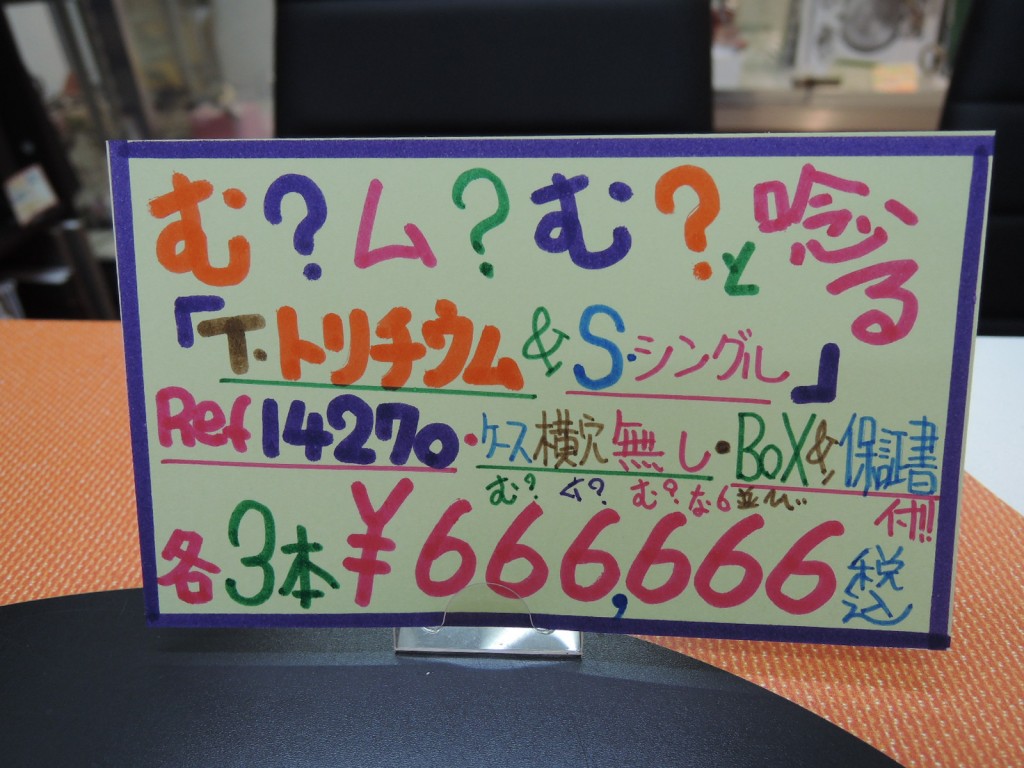 む?ム?む?と唸る
「T.トリチウム&S.シングル」
Ref 14270・ケース横穴無し・BOX&保証書付!!
む?ム?む?な6並び…
各3本¥666,666税込